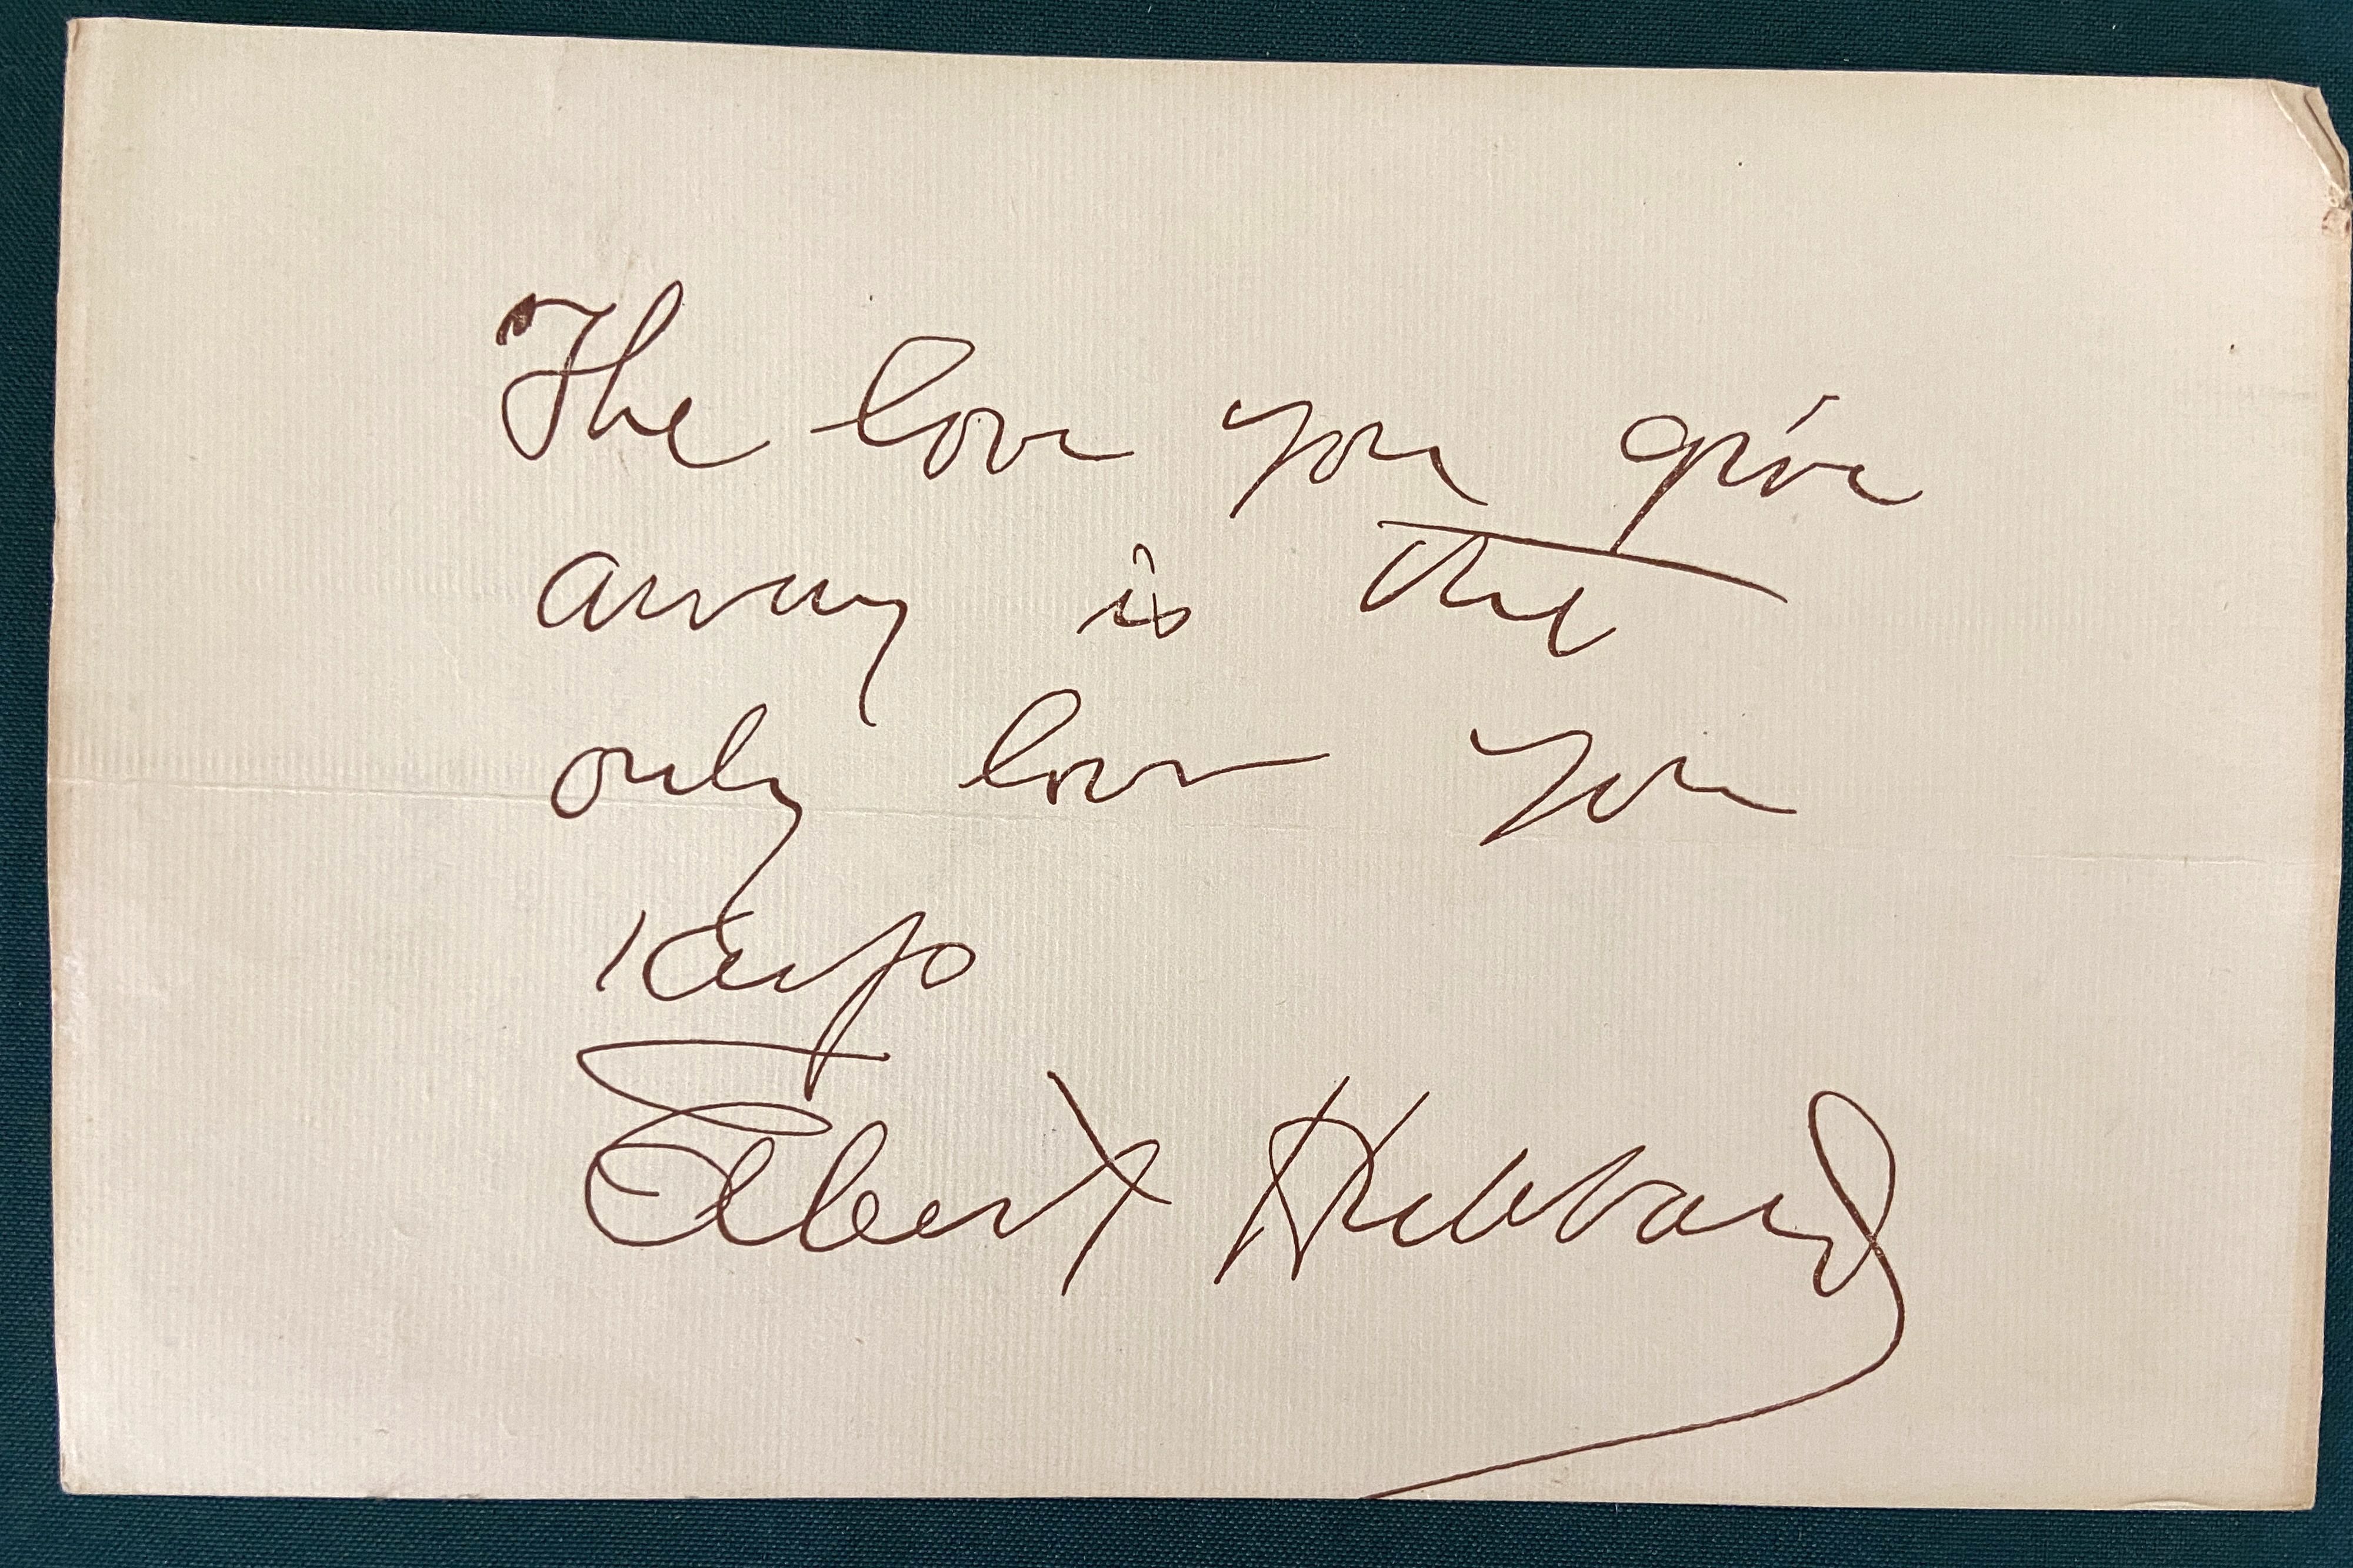 The love you give
away is the
only love you
keep
Elbert Hubbard